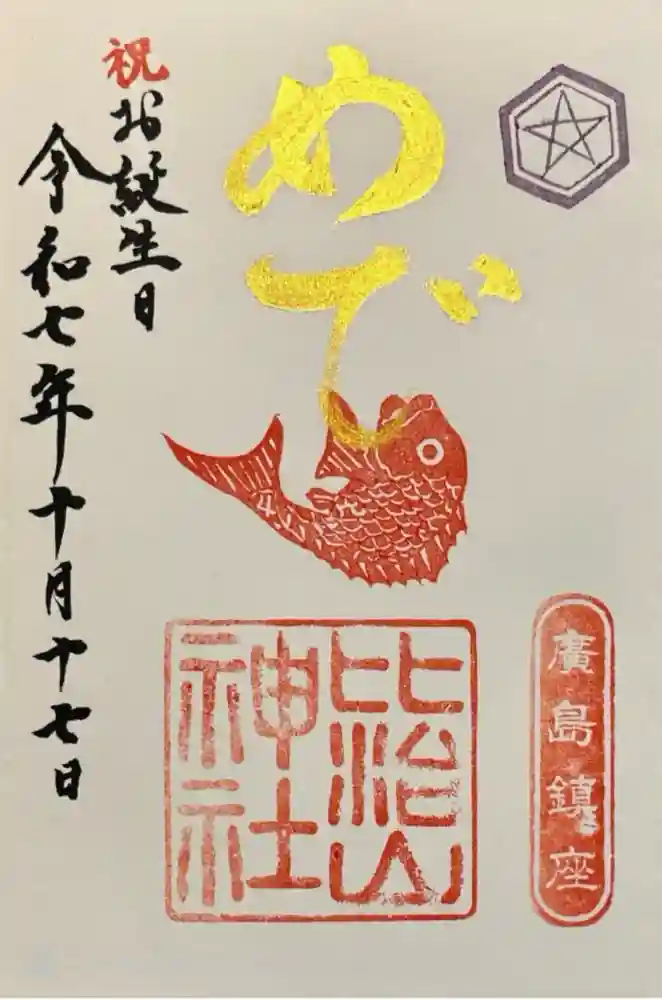 廣島鎮座
めで
比治山
神社
祝お誕生日
令和七年十月十七日